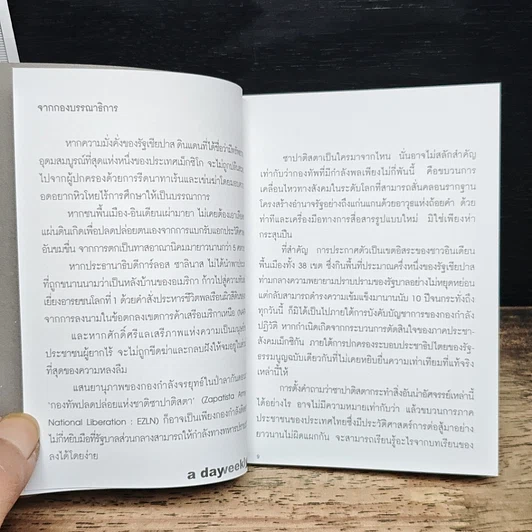 จากกองบรรณาธิการ
หากความมั่งคั่งของรัฐเชียปาส ดินแดนที่ได้ชื่อว่ามีทรัพยา
อุดมสมบูรณ์ที่สุดแห่งหนึ่งของประเทศเม็กซิโก จะไม่ถูกปล้น
ไปจากผู้ปกครองด้วยการรีดนาทาเร้นและเข่นฆ่าโดยแบ
อดอยากหิวโหยไร้การศึกษาให้เป็นบรรณาการ
หากชนพื้นเมือง-อินเดียนเผ่ามายา ไม่เคยต้อง
แผ่นดินเกิดเพื่อปลดปล่อยตนเองจากการแบกรับแอกประวัติ
อันขมขื่น จากการตกเป็นทาสอาณานิคมมายาวนานกว่า 5
หากประธานาธิบดีการ์ลอส ซาลินาส ไม่ได้นำพาประ
ที่ถูกขนานนามว่าเป็นหลังบ้านของอเมริกา ก้าวไปสู่ความ
เยี่ยงอารยชนโลกที่ 1 ด้วยคำสั่งประหารชีวิตพลเรือน
จากการลงนามในข้อตกลงเขตการค้าเสรีอเมริกาเหนือ
และหากศักดิ์ศรีและเสรีภาพแห่งความเป็นมนุษย์
ประชาชนผู้ยากไร้ จะไม่ถูกขีดฆ่าและกลบฝังให้จมอยู่ใน
ที่สุดของความหลงลืม
แสนยานุภาพของกองกำลังจรยุทธ์ในป่าลากันดอน
'กองทัพปลดปล่อยแห่งชาติซาปาติสตา' (Zapatista Arm
National Liberation : EZLN) ก็อาจเป็นเพียงกองกำลัง
ไม่กี่หยิบมือที่รัฐบาลส่วนกลางสามารถใช้กำลังทางทหาร
ลงได้โดยง่าย
a day weekly
ซาปาติสตาเป็นใครมาจากไหน นั่นอาจไม่สลักสำคัญ
เท่ากับว่ากองทัพที่มีกำลังพลเพียงไม่กี่พันนี้ คือขบวนการ
เคลื่อนไหวทางสังคมในระดับโลกที่สามารถสั่นคลอนรากฐาน
โครงสร้างอำนาจรัฐอย่างถึงแก่นแกนด้วยอาวุธแห่งถ้อยคำ ด้วย
ท่าทีและเครื่องมือทางการสื่อสารรูปแบบใหม่ มิใช่เพียงห่า
กระสุนปืน
ที่สำคัญ การประกาศตัวเป็นเขตอิสระของชาวอินเดียน
พื้นเมืองทั้ง 38 เขต ซึ่งกินพื้นที่ประมาณครึ่งหนึ่งของรัฐเชียปาส
ท่ามกลางความพยายามปราบปรามของรัฐบาลอย่างไม่หยุดหย่อน
แต่กลับสามารถดำรงความเข้มแข็งมานานนับ 10 ปีจนกระทั่งถึง
ทุกวันนี้ ก็มิได้เป็นไปภายใต้การบังคับบัญชาการของกองกำลัง
ปฏิวัติ หากกำเนิดเกิดจากกระบวนการตัดสินใจของภาคประชา-
สังคมเม็กซิกัน ภายใต้การปกครองระบอบประชาธิปไตยของรัฐ-
ธรรมนูญฉบับเดียวกันที่ไม่เคยหยิบยื่นความเท่าเทียมที่แท้จริง
เหล่านี้ให้
การตั้งคำถามว่าซาปาติสตากระทำสิ่งอันน่าอัศจรรย์เหล่านี้
ได้อย่างไร อาจไม่มีความหมายเท่ากับว่า แล้วขบวนการภาค
ประชาชนของประเทศไทยซึ่งมีประวัติศาสตร์การต่อสู้มาอย่าง
ยาวนานไม่ผิดแผกกัน จะสามารถเรียนรู้อะไรจากบทเรียนของ
8